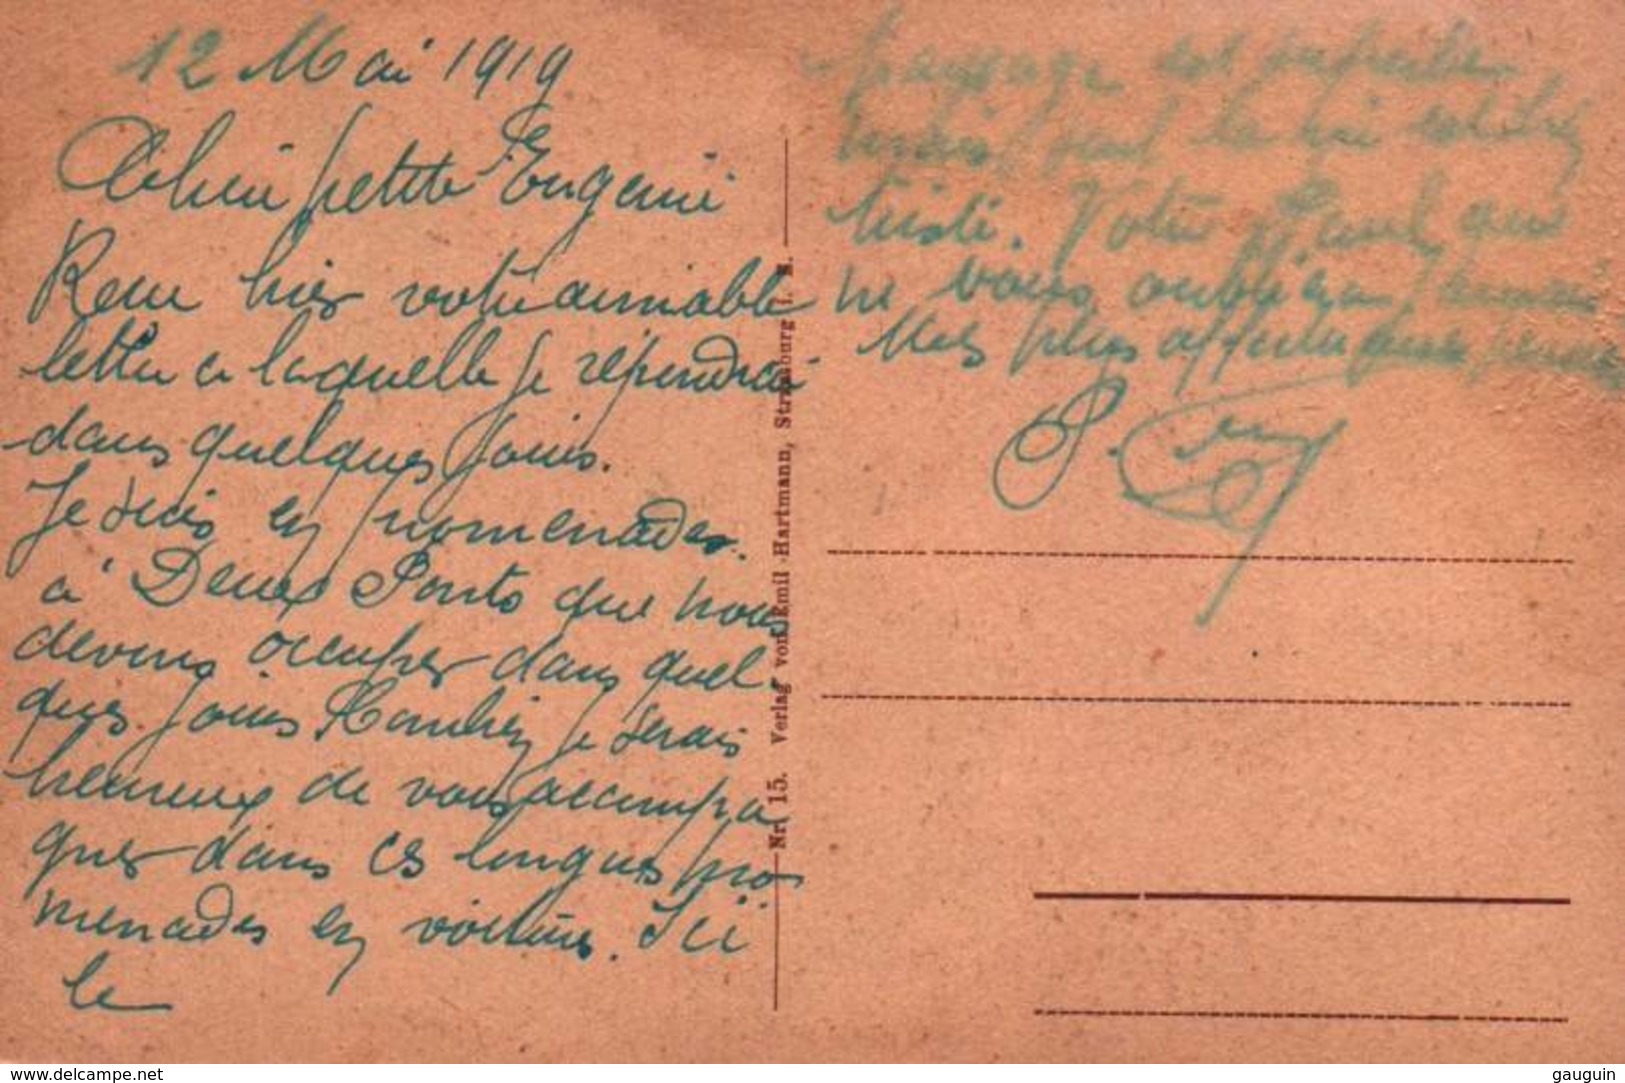 12 Mai 1919
Chère petite Eugénie
Reçu hier votre aimable
lettre a laquelle je répondrai
dans quelques jours.
Je suis en promenades.
à Deux Ponts que nous
devons occuper dans quel-
ques jours Combien je serais
heureux de vous accompa
gner dans ces longues pro
menades en voiture. Ici
le
est superbe
mais seul la vie est bien
triste. Votre Paul qui
ne vous oubliera jamais
Mes plus affectueuses
P.
Nr. 15. Verlag von Emil Hartmann, Strassburg i. E.
www.delcampe.net
gauguin